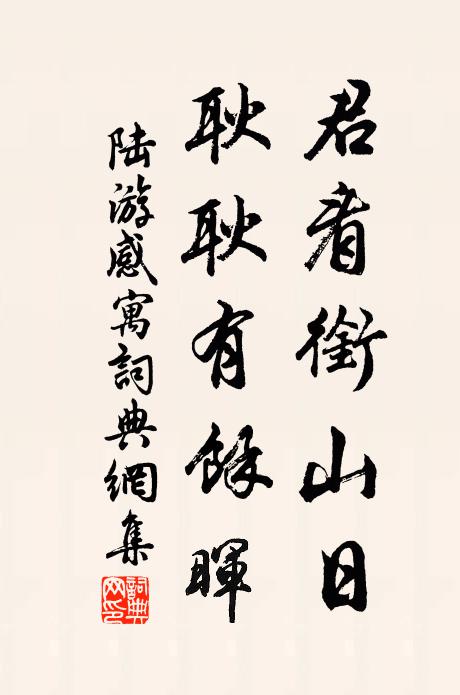 君看銜山日
耿耿有餘暉
陸游感寓詞典網集
詞典網印